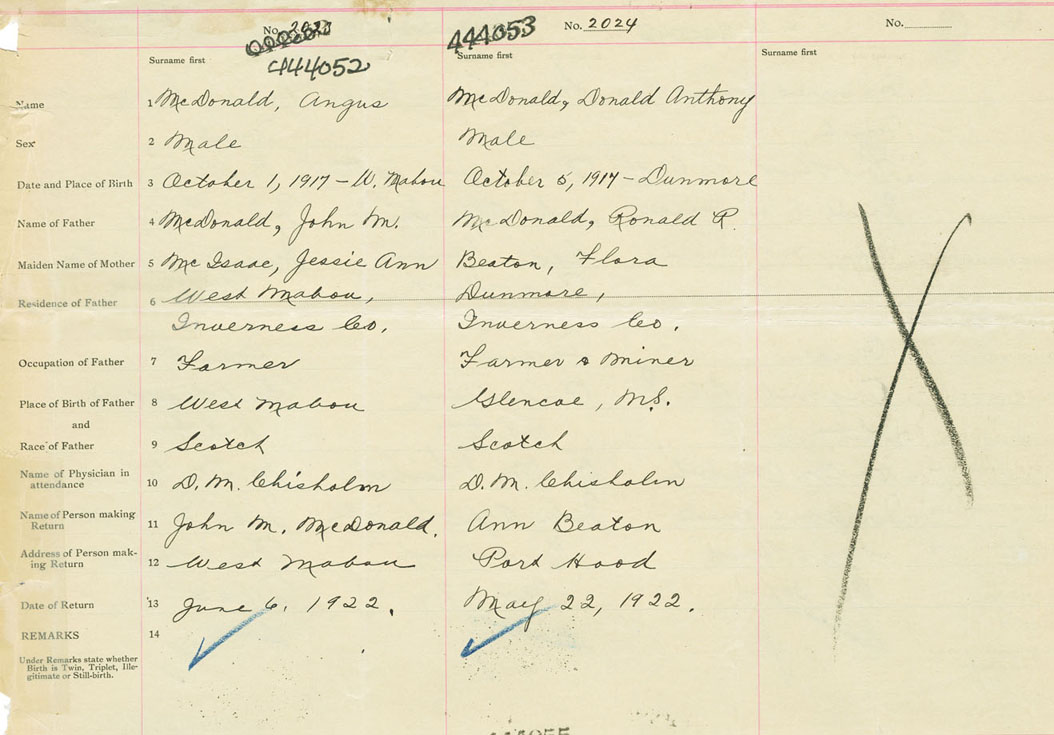 No. 2024
No.
444053
444052
Surname first
Surname first
Surname first
Name 1 McDonald, Angus McDonald, Donald Anthony
Sex 2 Male Male
Date and Place of Birth 3 October 1, 1917 – W. Mabou October 5, 1917 – Dunmore
Name of Father 4 McDonald, John M. McDonald, Ronald R.
Maiden Name of Mother 5 Mc Isaac, Jessie Ann Beaton, Flora
Residence of Father 6 West Mabou, Dunmore,
Inverness Co. Inverness Co.
Occupation of Father 7 Farmer Farmer & Miner
Place of Birth of Father 8 West Mabou Glencoe,
and
Race of Father 9 Scotch Scotch
Name of Physician in
attendance 10 D. M. Chisholm D. M. Chisholm
Name of Person making
Return 11 John M. McDonald. Ann Beaton
Address of Person mak-
ing Return 12 West Mabou Port Hood
Date of Return 13 June 6, 1922. May 22, 1922.
REMARKS 14
Under Remarks state whether
Birth is Twin, Triplet, Ille-
gitimate or Still-birth.